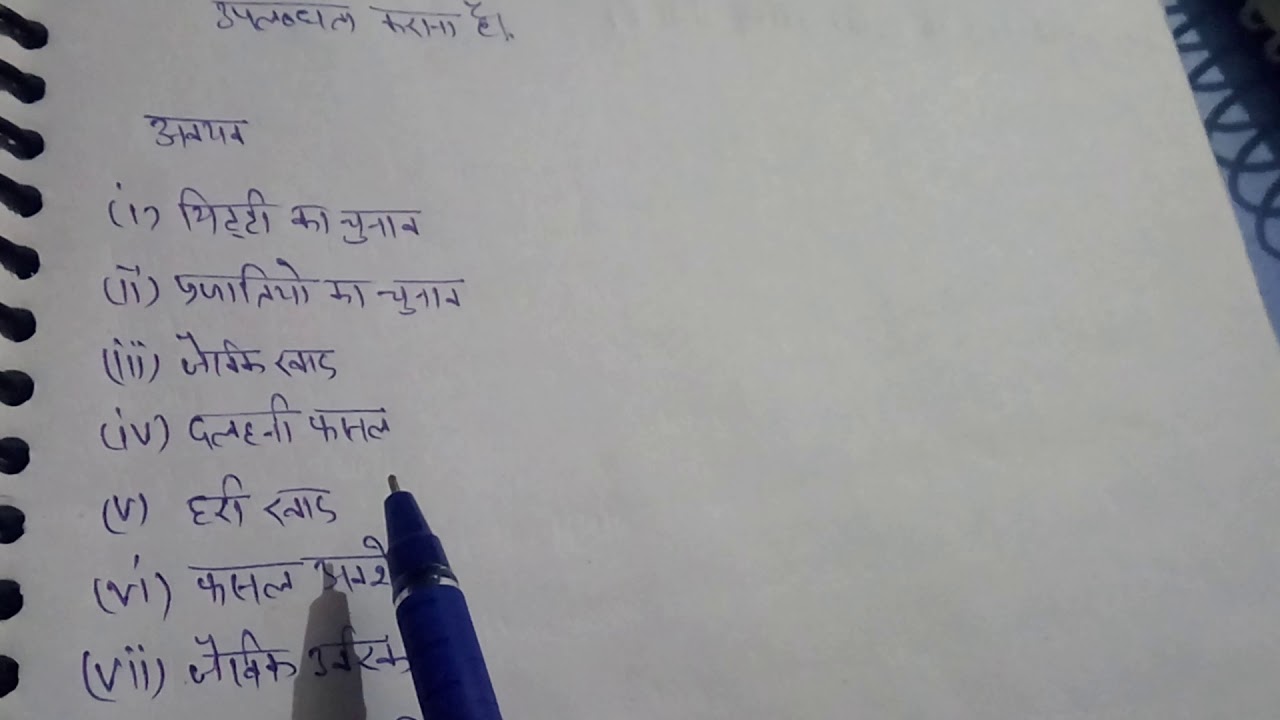 उपलब्धता कराना है।
अवयव
(i) मिट्टी का चुनाव
(ii) प्रजातियो का चुनाव
(iii) जैविक खाद
(iv) दलहनी फसल
(v) हरी खाद
(vi) फसल अवशे
(vii) जैविक उर्वरक